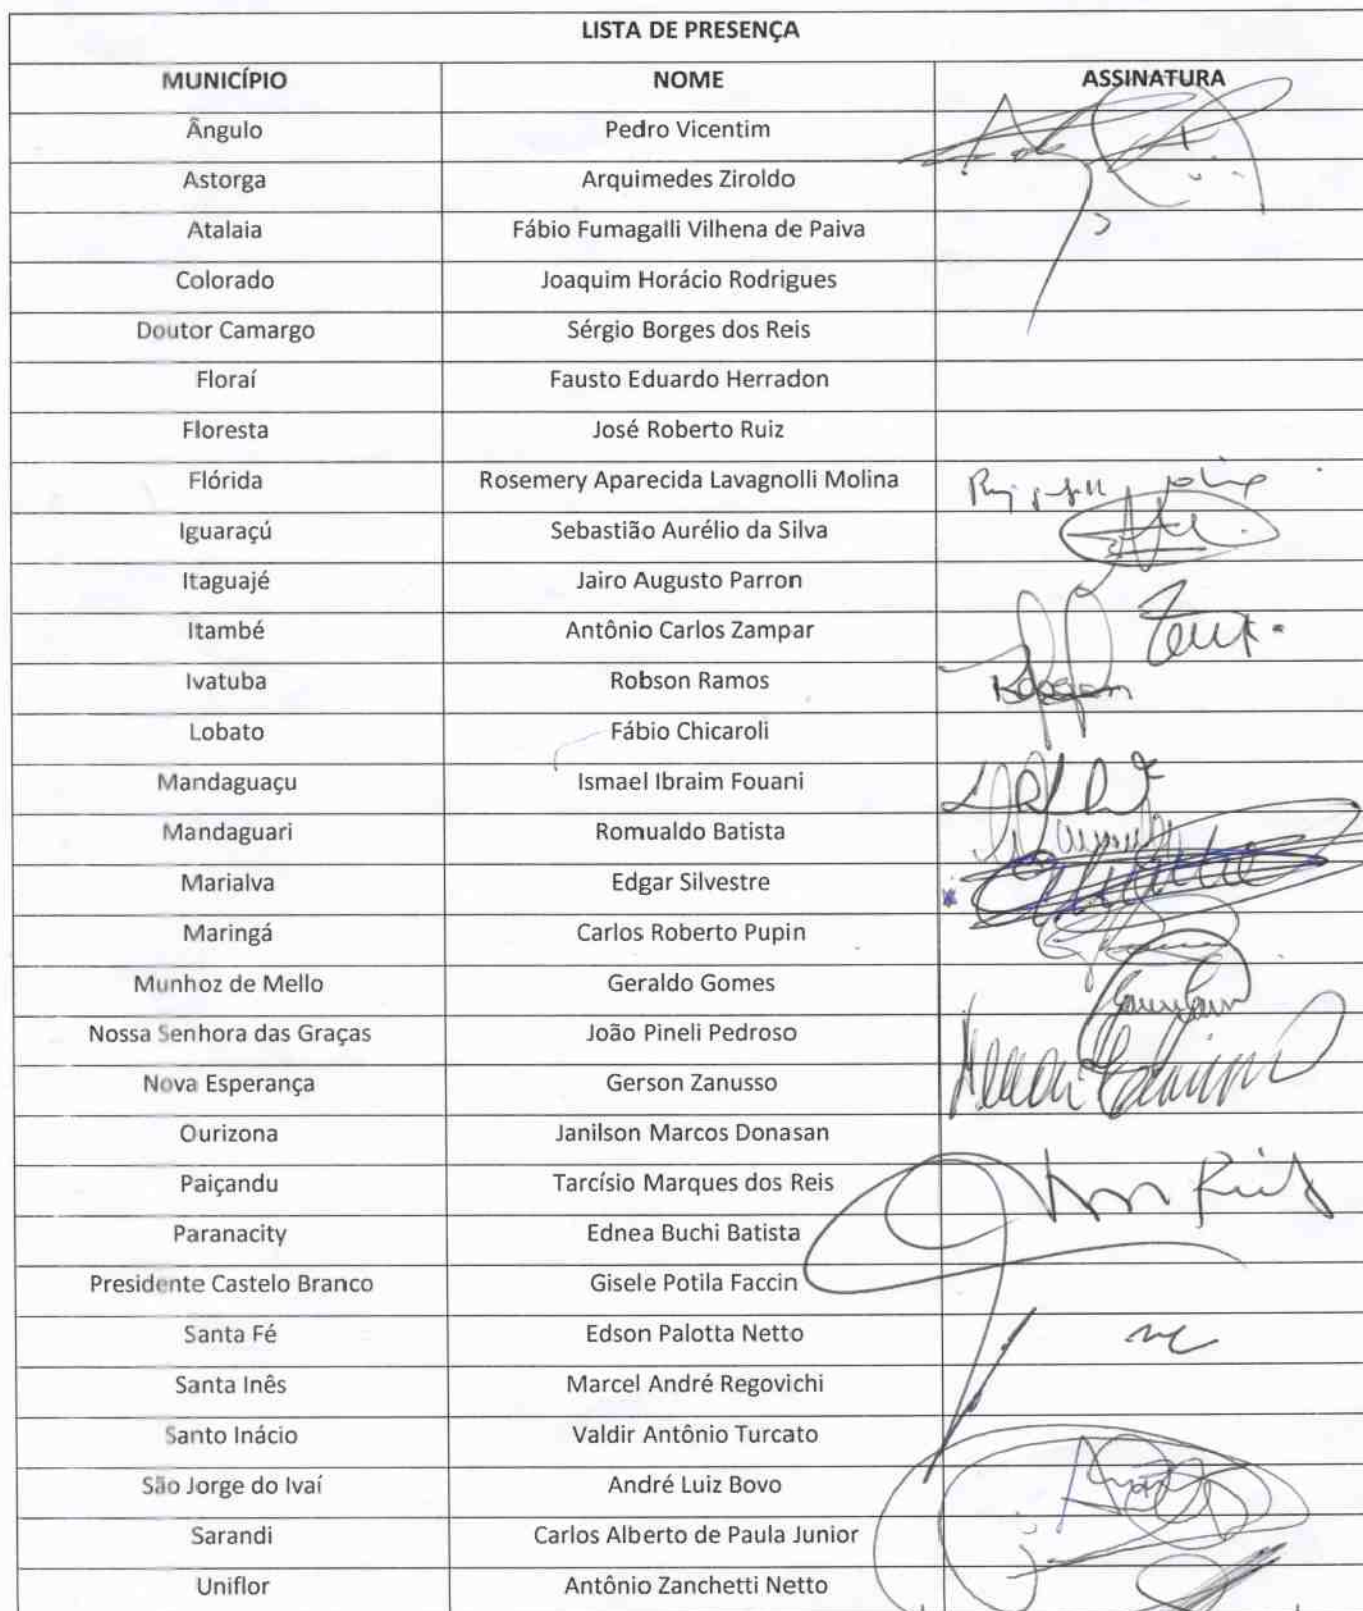 LISTA DE PRESENÇA
MUNICÍPIO NOME ASSINATURA
Ângulo Pedro Vicentim
Astorga Arquimedes Ziroldo
Atalaia Fábio Fumagalli Vilhena de Paiva
Colorado Joaquim Horácio Rodrigues
Doutor Camargo Sérgio Borges dos Reis
Floraí Fausto Eduardo Herradon
Floresta José Roberto Ruiz
Flórida Rosemery Aparecida Lavagnolli Molina
Iguaraçú Sebastião Aurélio da Silva
Itaguajé Jairo Augusto Parron
Itambé Antônio Carlos Zampar
Ivatuba Robson Ramos
Lobato Fábio Chicaroli
Mandaguaçu Ismael Ibraim Fouani
Mandaguari Romualdo Batista
Marialva Edgar Silvestre
Maringá Carlos Roberto Pupin
Munhoz de Mello Geraldo Gomes
Nossa Senhora das Graças João Pineli Pedroso
Nova Esperança Gerson Zanusso
Ourizona Janilson Marcos Donasan
Paiçandu Tarcísio Marques dos Reis
Paranacity Ednea Buchi Batista
Presidente Castelo Branco Gisele Potila Faccin
Santa Fé Edson Palotta Netto
Santa Inês Marcel André Regovichi
Santo Inácio Valdir Antônio Turcato
São Jorge do Ivaí André Luiz Bovo
Sarandi Carlos Alberto de Paula Junior
Uniflor Antônio Zanchetti Netto